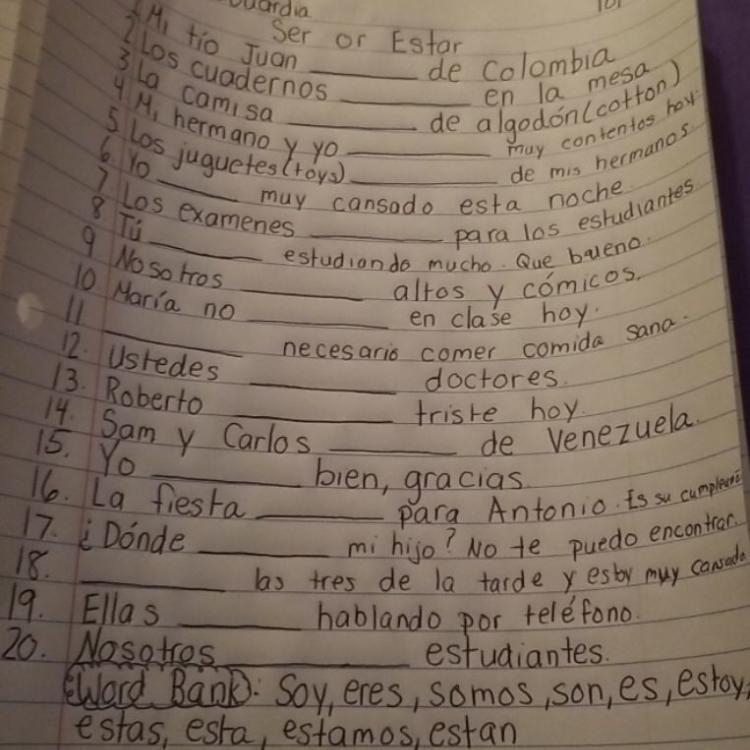 Guardia
Ser or Estar
1 Mi tío Juan ______ de Colombia
2 Los cuadernos ______ en la mesa
3 La camisa ______ de algodón (cotton)
4 Mi hermano y yo ______ muy contentos hoy.
5 Los juguetes (toys) ______ de mis hermanos.
6. Yo ______ muy cansado esta noche
7 Los examenes ______ para los estudiantes
8 Tú ______ estudiando mucho. Que bueno.
9 Nosotros ______ altos y cómicos.
10 María no ______ en clase hoy.
11 ______ necesario comer comida sana.
12. Ustedes ______ doctores.
13. Roberto ______ triste hoy.
14. Sam y Carlos ______ de Venezuela.
15. Yo ______ bien, gracias.
16. La fiesta ______ para Antonio. Es su
17. ¿Dónde ______ mi hijo? No te puedo encontrar.
18. ______ las tres de la tarde y estoy muy cansado
19. Ellas ______ hablando por teléfono.
20. Nosotros ______ estudiantes.
(Word Bank): Soy, eres, somos, son, es, estoy,
estas, esta, estamos, estan